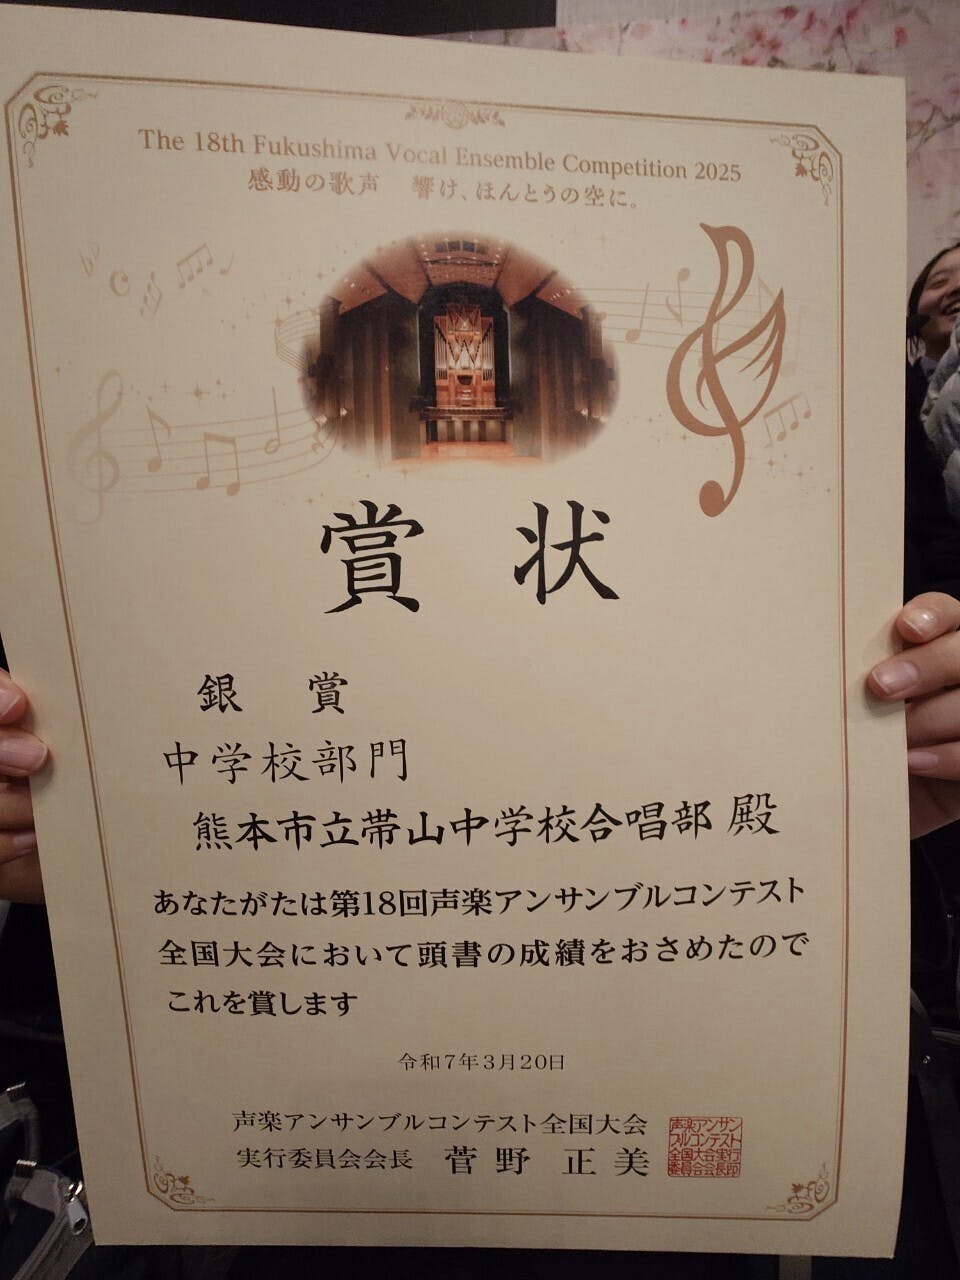 The 18th Fukushima Vocal Ensemble Competition 2025
感動の歌声 響け、ほんとうの空に。
賞 状
銀 賞
中学校部門
熊本市立帯山中学校合唱部 殿
あなたがたは第18回声楽アンサンブルコンテスト
全国大会において頭書の成績をおさめたので
これを賞します
令和7年3月20日
声楽アンサンブルコンテスト全国大会
実行委員会会長 菅野 正美
声楽アンサン
ブルコンテスト
全国大会実行
委員会会長印